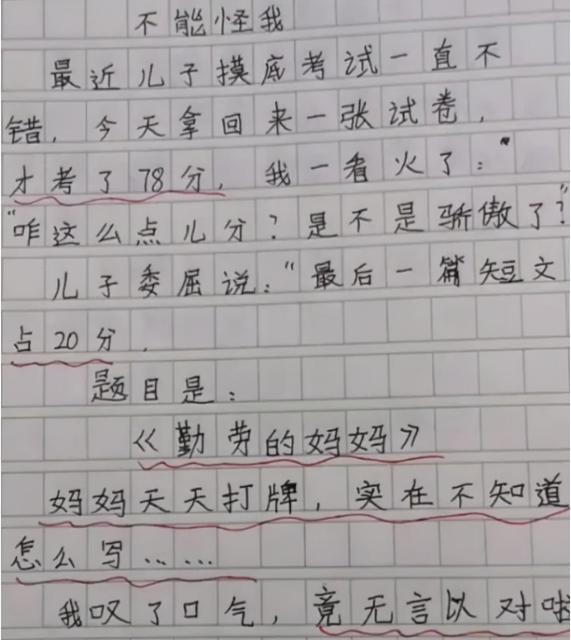 不能怪我
最近儿子摸底考试一直不
错，今天拿回来一张试卷，
才考了78分，我一看火了：
“咋这么点儿分？是不是骄傲了？”
儿子委屈说：“最后一篇短文
占20分．
题目是：
《勤劳的妈妈》
妈妈天天打牌，实在不知道
怎么写……
我叹了口气，竟无言以对啦